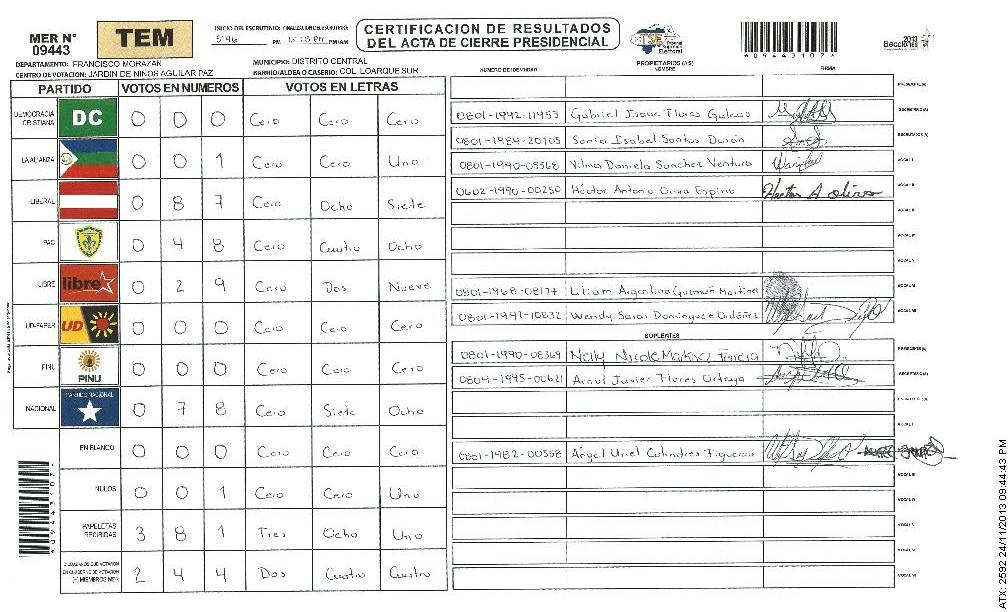 MER N° 09443
TEM
INICIO DEL ESCRUTINIO: 5:46 PM
FINALIZACION DEL ESCRUTINIO: PM/AM
CERTIFICACION DE RESULTADOS
DEL ACTA DE CIERRE PRESIDENCIAL
TSE Tribunal Supremo Electoral
2013 Elecciones
*094431074
DEPARTAMENTO: FRANCISCO MORAZAN
MUNICIPIO: DISTRITO CENTRAL
CENTRO DE VOTACION: JARDIN DE NIÑOS AGUILAR PAZ
BARRIO/ALDEA O CASERIO: COL LOARQUE SUR
PARTIDO VOTOS EN NUMEROS VOTOS EN LETRAS
DEMOCRACIA CRISTIANA DC 0 0 0 Cero Cero Cero
LA ALIANZA 0 0 1 Cero Cero Uno
LIBERAL 0 8 7 Cero Ocho Siete
PAC 0 4 8 Cero Cuatro Ocho
LIBRE libre 0 2 9 Cero Dos Nueve
UD-FAPER UD 0 0 0 Cero Cero Cero
PINU PINU 0 0 0 Cero Cero Cero
NACIONAL PARTIDO NACIONAL 0 7 8 Cero Siete Ocho
EN BLANCO 0 0 0 Cero Cero Cero
NULOS 0 0 1 Cero Cero Uno
PAPELETAS RECIBIDAS 3 8 1 Tres Ocho Uno
CIUDADANOS QUE VOTARON EN CUADERNO DE VOTACION (+) MIEMBROS MER 2 4 4 Dos Cuatro Cuatro
PROPIETARIOS (AS)
NUMERO DE IDENTIDAD NOMBRE FIRMA
PRESIDENTE(A)
0801-1992-11953 Gabriel Isaac Flores SECRETARIO(A)
0801-1984-20105 Sonia Isabel Santos Durán ESCRUTADOR(A)
0801-1990-05568 Vilma Daniela Sanchez Ventura VOCAL I
0602-1990-00250 Héctor Antonio Oliva Espino Hector A Oliva VOCAL II
VOCAL III
VOCAL IV
VOCAL V
0801-1968-08177 Lilian Argentina Guzmán Martinez VOCAL VI
0801-1991-10832 Wendy Sarai Dominguez Ordóñez VOCAL VII
SUPLENTES
0801-1990-08369 Nelly Nicole PRESIDENTE(A)
0804-1995-00621 Javier Flores Ortega SECRETARIO(A)
ESCRUTADOR(A)
VOCAL I
0801-1982-00558 Angel Uriel Calindres Figueroa
VOCAL III
VOCAL IV
VOCAL V
VOCAL VI
VOCAL VII
*094431074
ATX: 2592 24/11/2013 09:44:43 PM